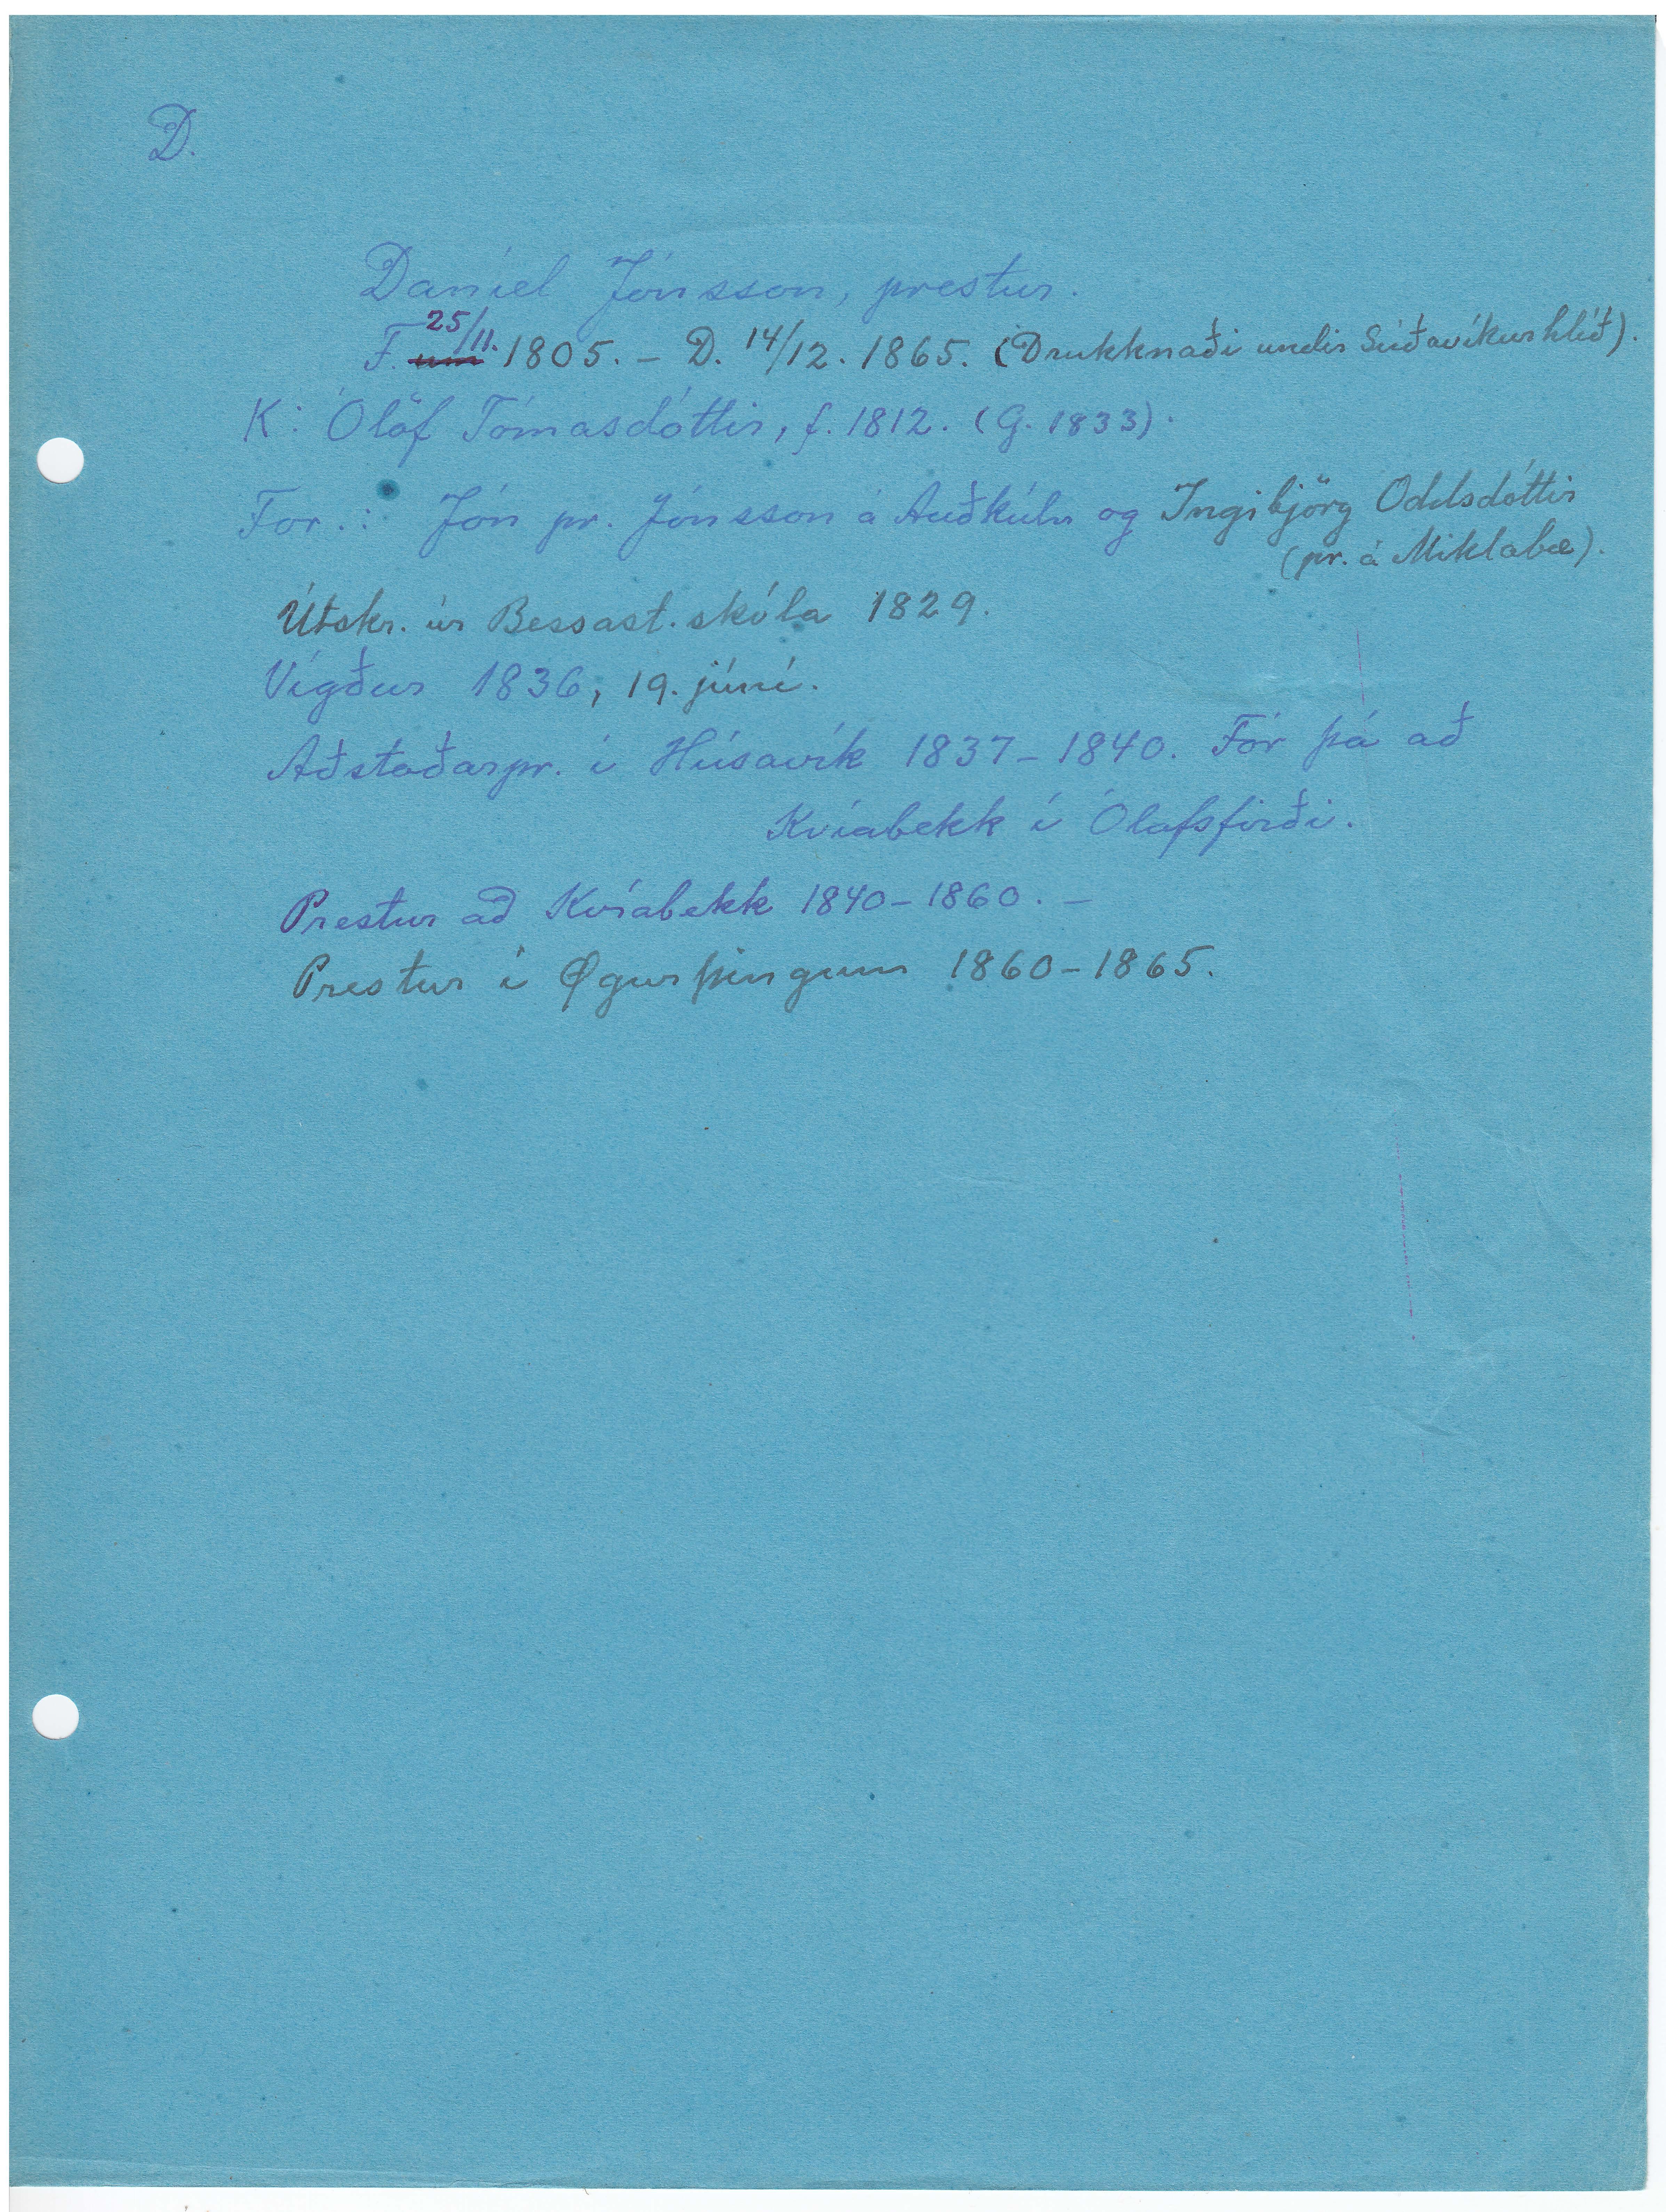 D.
Daníel Jónsson, prestur.
F. um 25/11. 1805. – D. 14/12. 1865. (Drukknaði undir Súðavíkurhlíð).
K: Ólöf Tómasdóttir, f. 1812. (G. 1833).
For.: Jón pr. Jónsson á Auðkúlu og Ingibjörg Oddsdóttir
(pr. á Miklabæ).
Útskr. úr Bessast. skóla 1829.
Vígður 1836, 19. júní.
Aðstoðarpr. í Húsavík 1837–1840. Fór þá að
Kvíabekk í Ólafsfirði.
Prestur að Kvíabekk 1840–1860. –
Prestur í Øgurþingum 1860–1865.